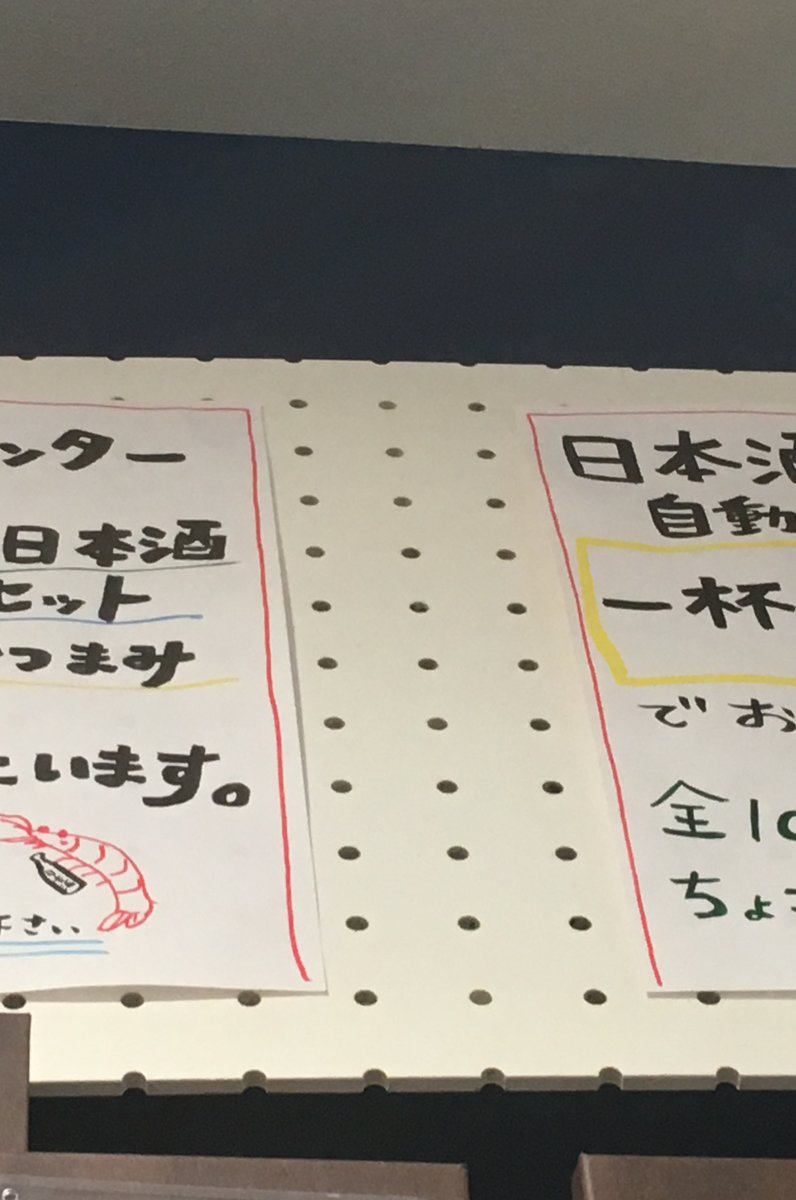 ンター
日本酒
セット
つまみ
います。
さい
日本酒
自動
一杯
でお
全10
ちょ